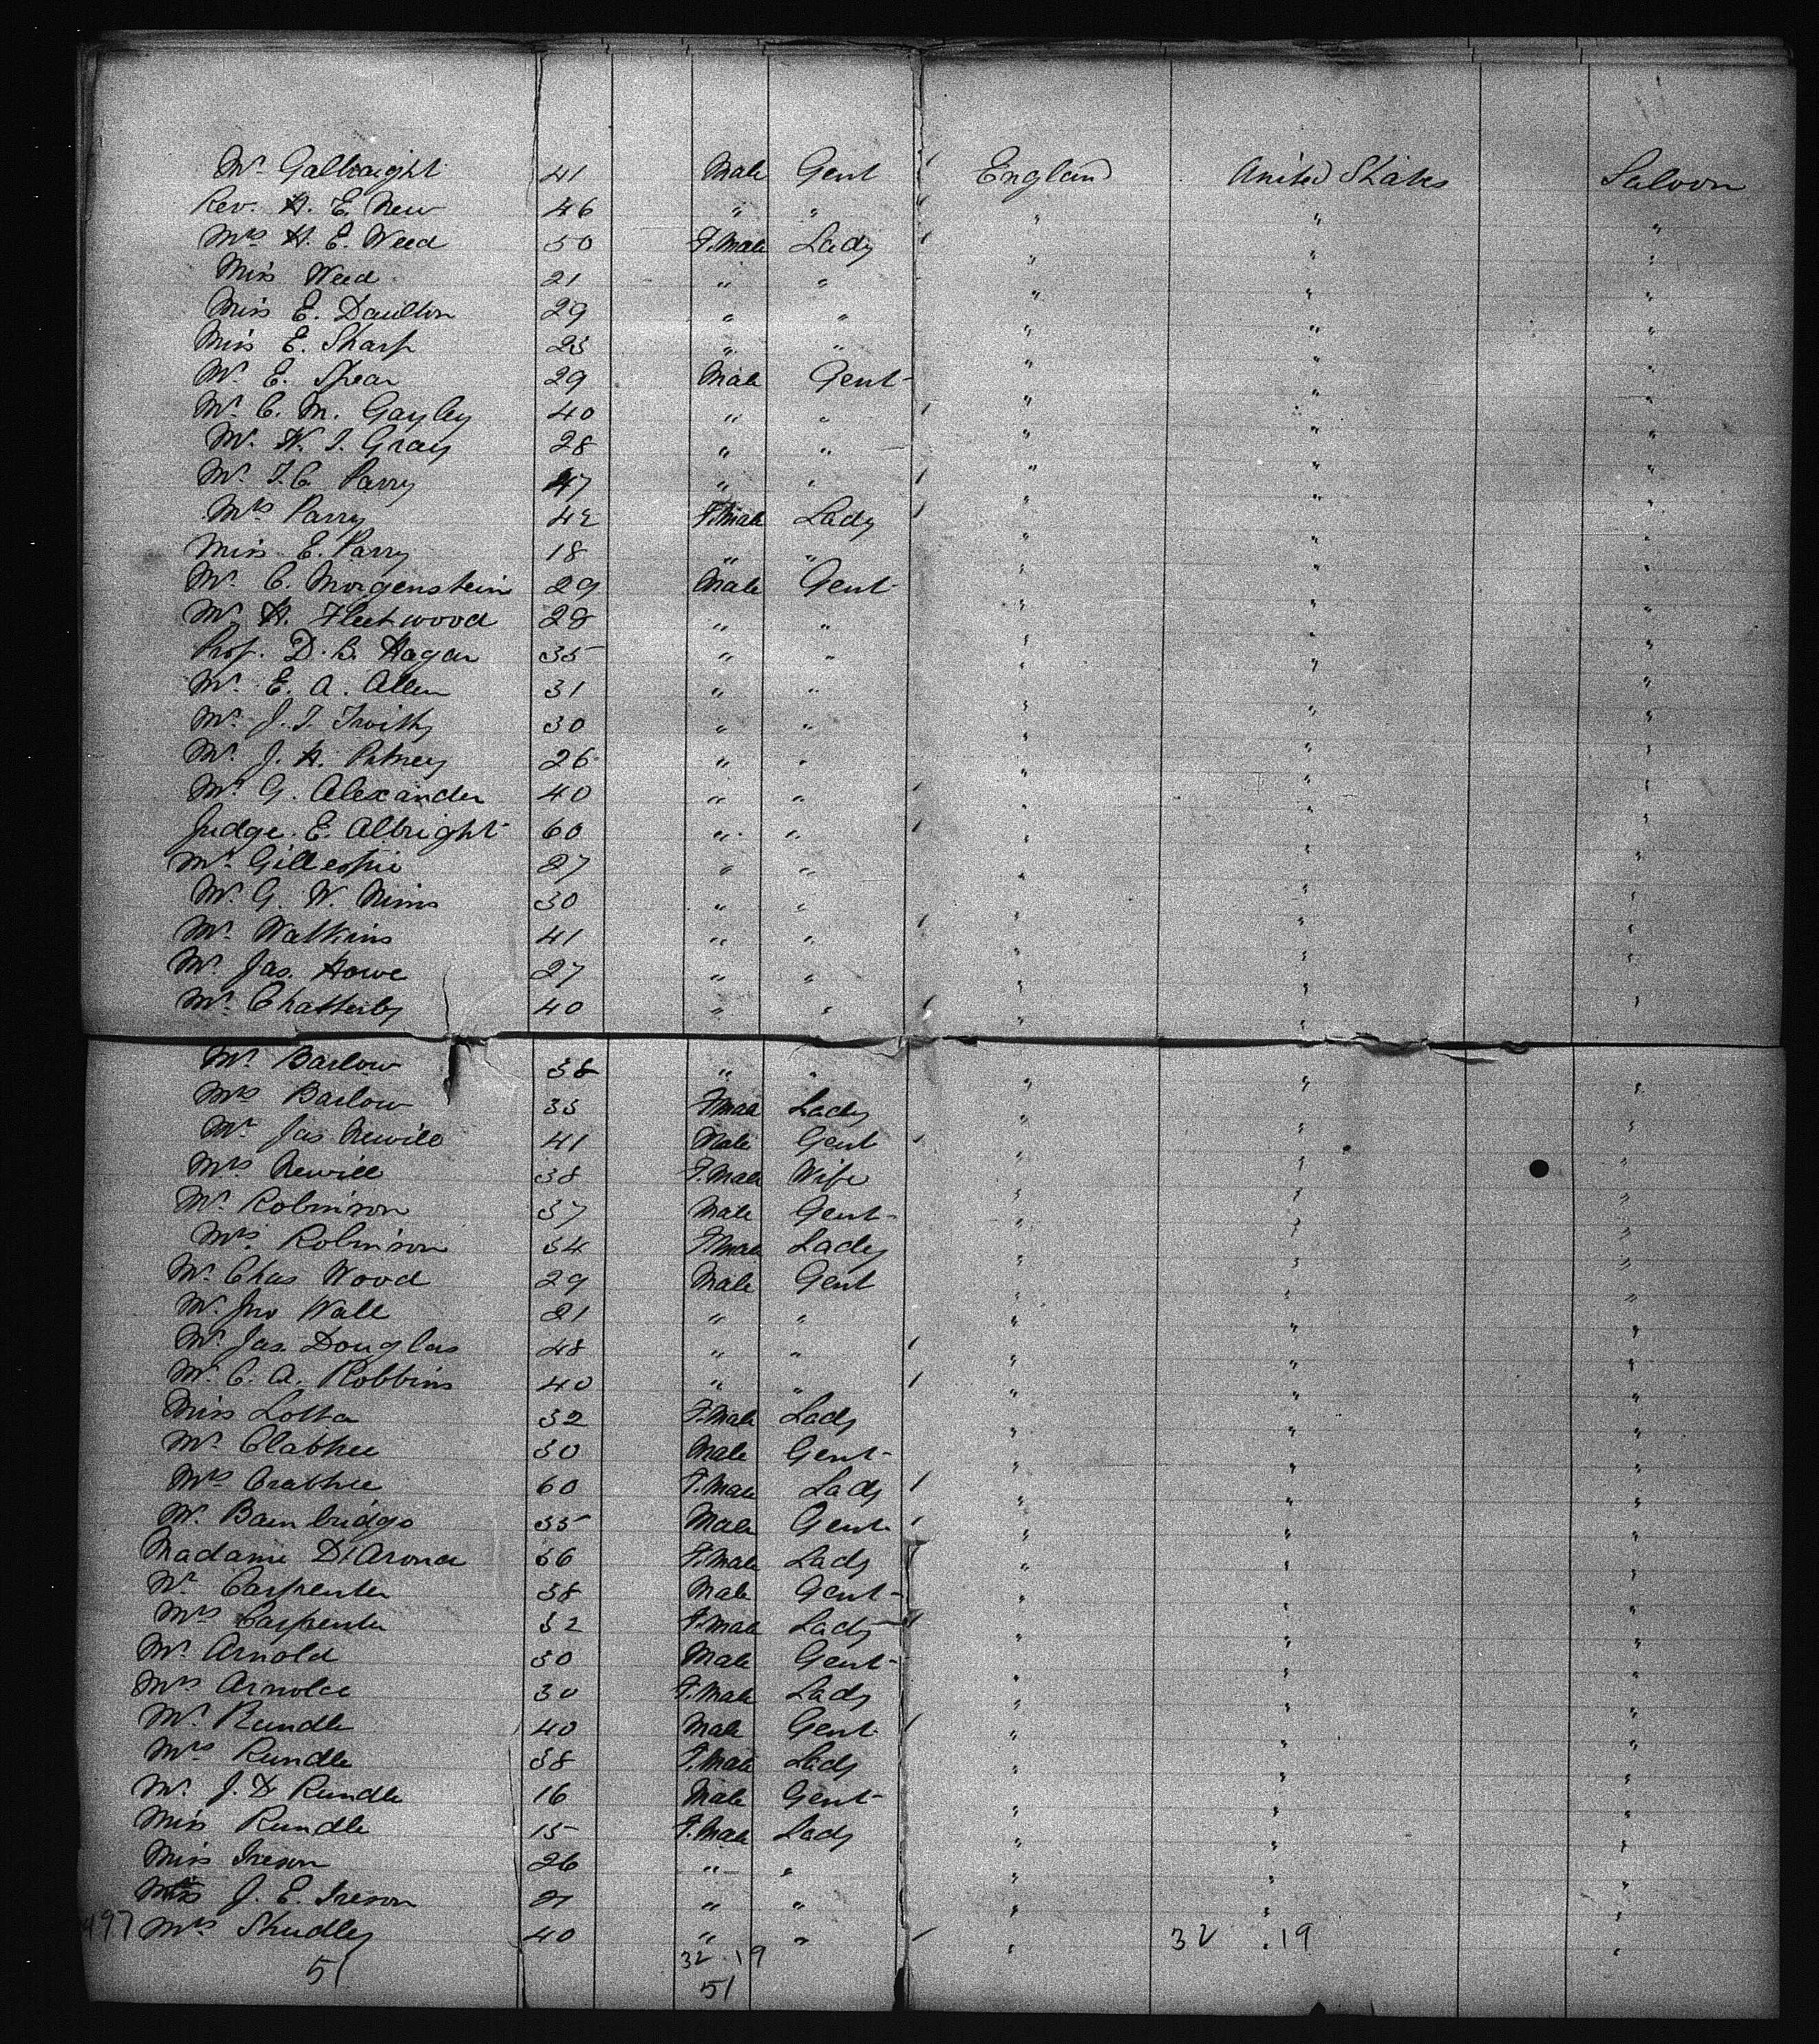 Mr Galbraight 41 Male Gent England United States Saloon
Rev. H. E. New 46 " " " " "
Mrs H. E. Weed 50 F.Male Lady " " "
Miss Weed 21 " " " " "
Miss E. Daulton 29 " " " " "
Miss E. Sharp 23 " " " " "
Mr E. Spear 29 Male Gent " " "
Mr C. M. Gayley 40 " " " " "
Mr W. I. Gray 28 " " " " "
Mr T. C. Parry 47 " " " " "
Mrs Parry 42 F.Male Lady " " "
Miss E. Parry 18 " " " " "
Mr C. Morgenstein 29 Male Gent " " "
Mr H. Fleetwood 28 " " " " "
Prof. D. B. Hagar 35 " " " " "
Mr E. A. Allen 31 " " " " "
Mr J. T. 30 " " " " "
Mr J. H. 26 " " " " "
Mr G. Alexander 40 " " " " "
Judge E. Albright 60 " " " " "
Mr Gillespie 27 " " " " "
Mr G. W. Nims 30 " " " " "
Mr Watkins 41 " " " " "
Mr Jas. Howe 27 " " " " "
Mr 40 " " " " "
Mr Barlow 38 " " " " "
Mrs Barlow 33 F.Male Lady " " "
Mr Jas Newill 41 Male Gent " " "
Mrs Newill 38 F.Male Wife " " "
Mr Robinson 37 Male Gent " " "
Mrs Robinson 34 F.Male Lady " " "
Mr Chas Wood 29 Male Gent " " "
Mr Jno Wall 21 " " " " "
Mr Jas. Douglas 48 " " " " "
Mr C. A. Robbins 40 " " " " "
Miss Lotta 32 F.Male Lady " " "
Mr Clabtree 30 Male Gent " " "
Mrs Crabtree 60 F.Male Lady " " "
Mr Bambridge 35 Male Gent " " "
Madame D'Arona 36 F.Male Lady " " "
Mr Carpenter 38 Male Gent " " "
Mrs Carpenter 32 F.Male Lady " " "
Mr Arnold 30 Male Gent " " "
Mrs Arnold 30 F.Male Lady " " "
Mr Rundle 40 Male Gent " " "
Mrs Rundle 38 F.Male Lady " " "
Mr J. D Rundle 16 Male Gent " " "
Miss Rundle 15 F.Male Lady " " "
Miss Ireson 26 " " " " "
Miss J. E. Ireson 21 " " " " "
497 Mrs Studley 40 " " " 32 . 19 "
32 . 19
51 51